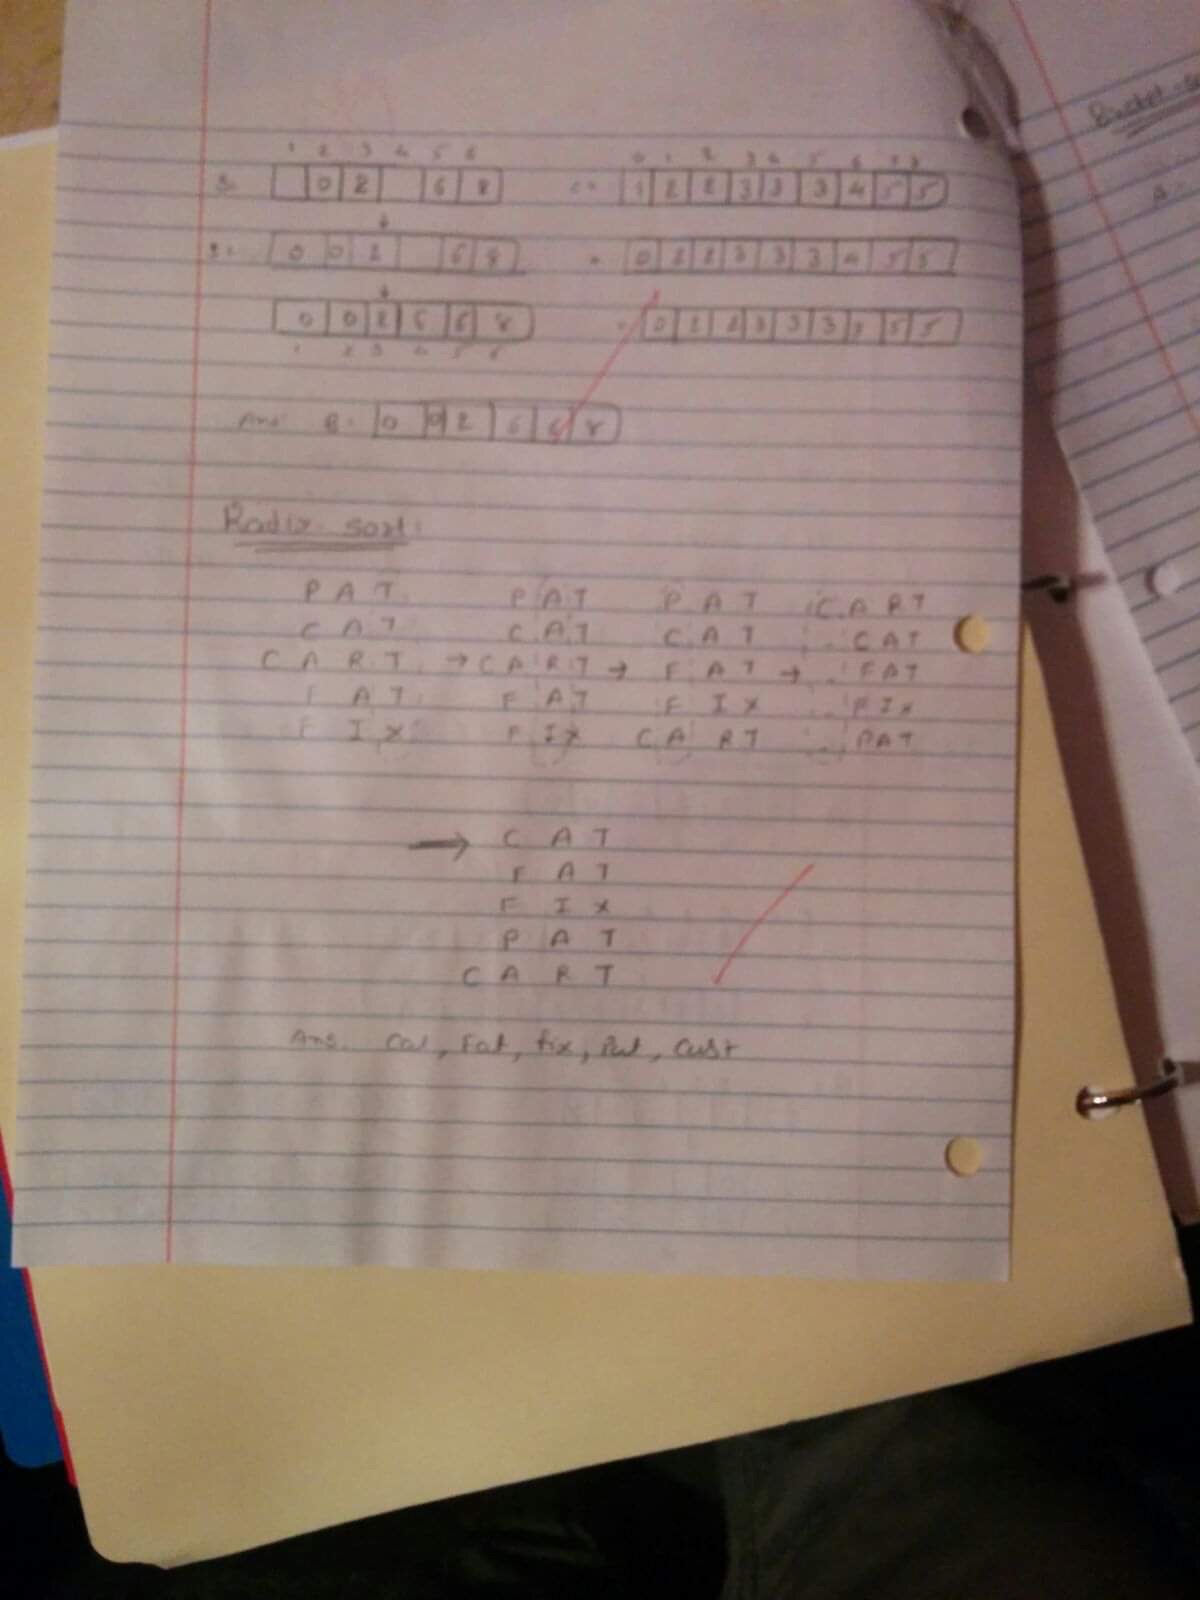 1 2 3 4 5 6 0 1 2 3 4 5 6 7 8
B. 0 2 6 8 C = 1 2 2 3 3 3 4 5 5
0 0 2 6 8 0 2 2 3 3 3 4 5 5
0 0 2 6 6 8 0 2 2 3 3 3 3 5 5
1 2 3 4 5 6
Ans: B = 0 0 2 6 6 8
Radix sort:
PAT PAT PAT CART
CAT CAT CAT CAT
CART → CART → FAT → FAT
FAT FAT FIX FIX
FIX FIX CART PAT
→ CAT
FAT
FIX
PAT
CART
Ans. Cat, Fat, fix, Pat, Cart
Bucket